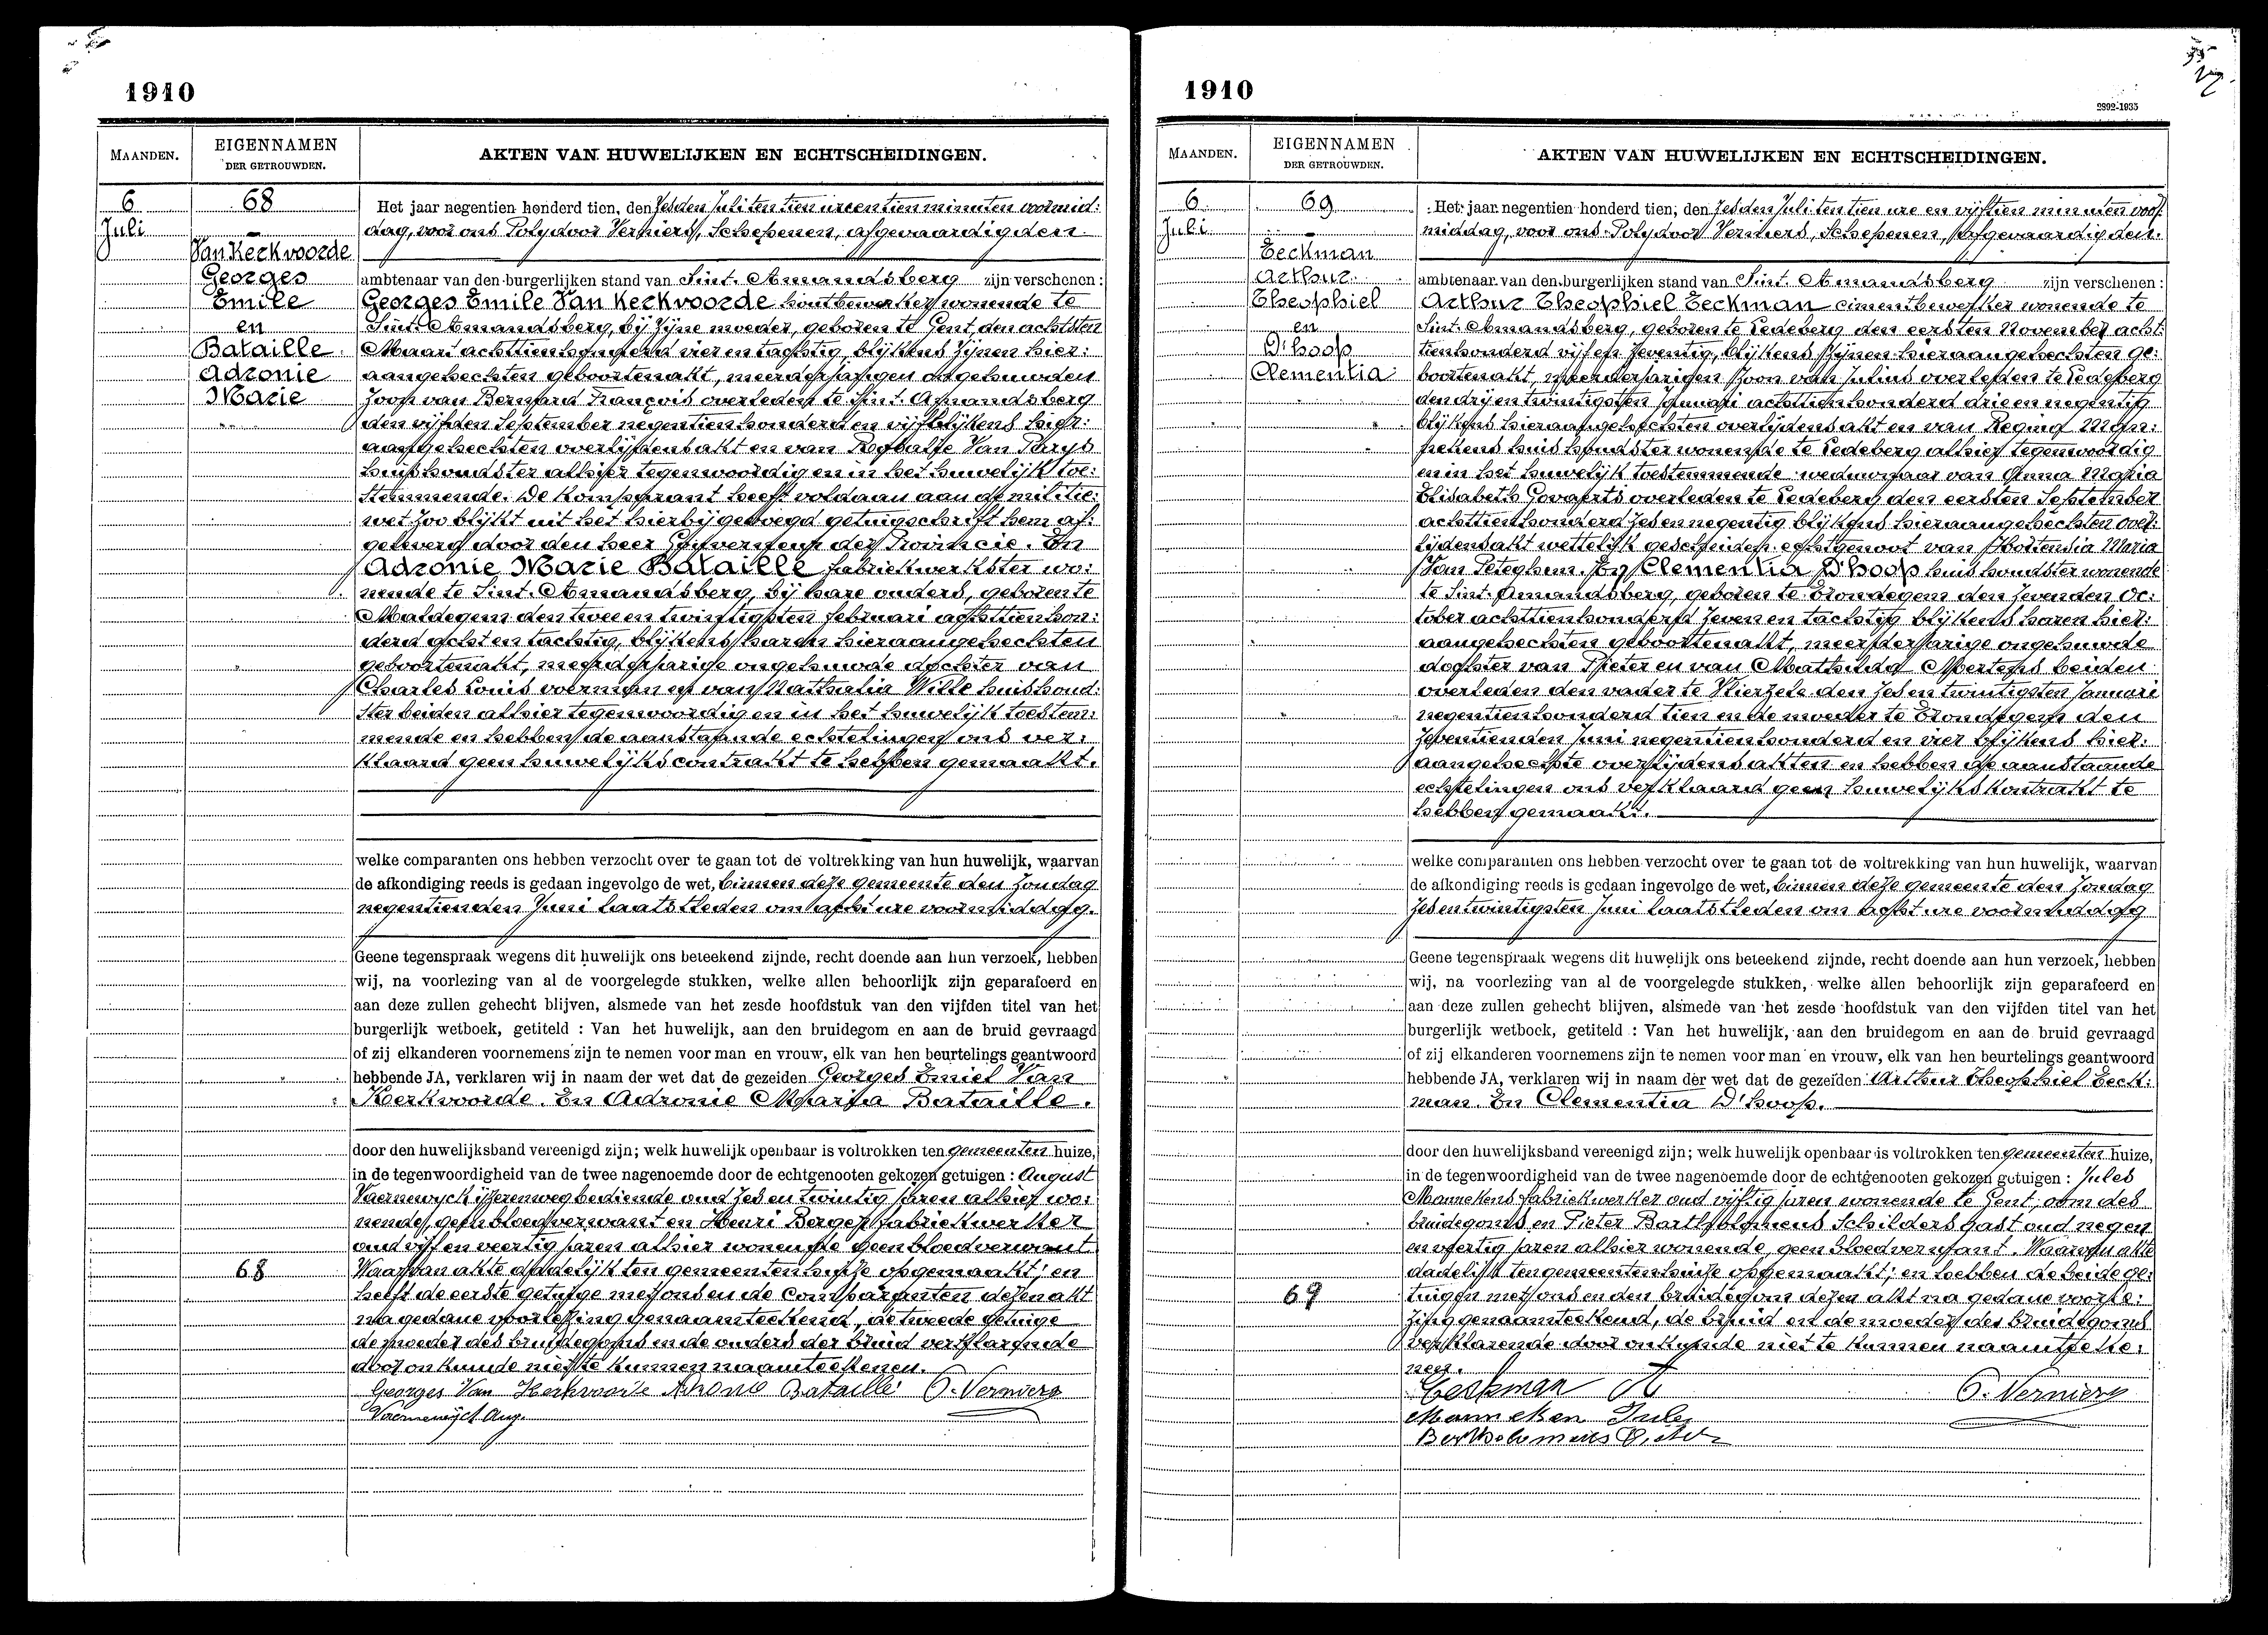 1910
MAANDEN.
EIGENNAMEN
DER GETROUWDEN.
AKTEN VAN HUWELIJKEN EN ECHTSCHEIDINGEN.
6
Juli
68
Van Kerkvoorde
Georges
Emile
en
Bataille
Adronie
Marie
Het jaar negentien honderd tien, den zesden Juli ten tien ure en tien minuten voormid:
dag, voor ons Polydoor Verniers, Schepenen, afgevaardigden
ambtenaar van den burgerlijken stand van Sint. Amandsberg zijn verschenen:
Georges Emile Van Kerkvoorde houtbewerker wonende te
Sint. Amandsberg, bij zijne moeder, geboren te Gent, den achtsten
Maart achttien honderd vier en tachtig, blijkens zijnen hier:
aangehechten geboortenakt, meerderjarigen ongehuwden
zoon van Bernard François overleden te Sint. Amandsberg
den vijfden September negentien honderd en vijf blijkens hier:
aangehechten overlijdensakt en van Rosalie Van Parys
huishoudster alhier tegenwoordig en in het huwelijk toe:
stemmende. De komparant heeft voldaan aan de militie:
wet zoo blijkt uit het hierbijgevoegd getuigschrift hem af:
geleverd door den heer Gouverneur der Provincie. En
Adronie Marie Bataille fabriekwerkster wo:
nende te Sint. Amandsberg, bij hare ouders, geboren te
Maldegem den twee en twintigsten februari achttien hon:
derd acht en tachtig, blijkens haren hieraangehechten
geboortenakt, meerderjarige ongehuwde dochter van
Charles Louis voerman en van Nathalia Wille huishoud:
ster beiden alhier tegenwoordig en in het huwelijk toestem:
mende en hebben de aanstaande echtelingen ons ver:
klaard geen huwelijkscontrakt te hebben gemaakt.
welke comparanten ons hebben verzocht over te gaan tot de voltrekking van hun huwelijk, waarvan
de afkondiging reeds is gedaan ingevolge de wet, binnen deze gemeente den Zondag
negentienden Juni laatstleden om acht ure voormiddag.
Geene tegenspraak wegens dit huwelijk ons beteekend zijnde, recht doende aan hun verzoek, hebben
wij, na voorlezing van al de voorgelegde stukken, welke allen behoorlijk zijn geparafeerd en
aan deze zullen gehecht blijven, alsmede van het zesde hoofdstuk van den vijfden titel van het
burgerlijk wetboek, getiteld : Van het huwelijk, aan den bruidegom en aan de bruid gevraagd
of zij elkanderen voornemens zijn te nemen voor man en vrouw, elk van hen beurtelings geantwoord
hebbende JA, verklaren wij in naam der wet dat de gezeiden Georges Emiel Van
Kerkvoorde. En Adronie Maria Bataille.
door den huwelijksband vereenigd zijn; welk huwelijk openbaar is voltrokken ten gemeenten huize,
in de tegenwoordigheid van de twee nagenoemde door de echtgenooten gekozen getuigen : August
Vaernewyck ijzerenwegbediende oud zes en twintig jaren alhier wo:
nende, geen bloedverwant en Henri Berger fabriekwerker
oud vijf en veertig jaren alhier wonende geen bloedverwant.
Waarvan akte dadelijk ten gemeentenhuize opgemaakt; en
heeft de eerste getuige met ons en de Comparanten dezen akt
na gedane voorlezing genaamteekend, de tweede getuige
de moeder des bruidegoms en de ouders der bruid verklarende
door onkunde niet te kunnen naamteekenen.
68
Georges Van Kerkvoorde Adronie Bataille P. Verniers
Vaernewyck Aug.
1910
2892-1935
MAANDEN.
EIGENNAMEN
DER GETROUWDEN.
AKTEN VAN HUWELIJKEN EN ECHTSCHEIDINGEN.
6
Juli
69
Eeckman
Arthur
Theophiel
en
D'hoop
Clementia
Het jaar negentien honderd tien, den zesden Juli ten tien ure en vijftien minuten voor:
middag, voor ons Polydoor Verniers, Schepenen, afgevaardigden
ambtenaar van den burgerlijken stand van Sint. Amandsberg zijn verschenen:
Arthur Theophiel Eeckman cimentbewerker wonende te
Sint. Amandsberg, geboren te Ledeberg den eersten November acht:
tienhonderd vijf en zeventig, blijkens zijnen hieraangehechten ge:
boortenakt, meerderjarigen zoon van Julius overleden te Ledeberg
den drij en twintigsten Januari achttien honderd drie en negentig
blijkens hieraangehechten overlijdensakt en van Regina Man:
nekens huishoudster wonende te Ledeberg alhier tegenwoordig
en in het huwelijk toestemmende weduwnaar van Anna Maria
Elisabeth Govaerts overleden te Ledeberg den eersten September
achttienhonderd zes en negentig blijkens hieraangehechten over:
lijdensakt wettelijk gescheiden echtgenoot van Hortensia Maria
Van Peteghem. En Clementia D'hoop huishoudster wonende
te Sint. Amandsberg, geboren te Erondegem den zevenden Oc:
tober achttienhonderd zeven en tachtig blijkens haren hier:
aangehechten geboortenakt, meerderjarige ongehuwde
dochter van Pieter en van Mathilda Mertens beiden
overleden den vader te Vlierzele den zes en twintigsten Januari
negentienhonderd tien en de moeder te Erondegem den
zeventienden Juni negentien honderd en vier blijkens hier:
aangehechte overlijdensakten en hebben de aanstaande
echtelingen ons verklaard geen huwelijkskontrakt te
hebben gemaakt.
welke comparanten ons hebben verzocht over te gaan tot de voltrekking van hun huwelijk, waarvan
de afkondiging reeds is gedaan ingevolge de wet, binnen deze gemeente den Zondag
zes en twintigsten Juni laatstleden om acht ure voormiddag
Geene tegenspraak wegens dit huwelijk ons beteekend zijnde, recht doende aan hun verzoek, hebben
wij, na voorlezing van al de voorgelegde stukken, welke allen behoorlijk zijn geparafeerd en
aan deze zullen gehecht blijven, alsmede van het zesde hoofdstuk van den vijfden titel van het
burgerlijk wetboek, getiteld : Van het huwelijk, aan den bruidegom en aan de bruid gevraagd
of zij elkanderen voornemens zijn te nemen voor man en vrouw, elk van hen beurtelings geantwoord
hebbende JA, verklaren wij in naam der wet dat de gezeiden Arthur Theophiel Eeck:
man. En Clementia D'hoop.
door den huwelijksband vereenigd zijn; welk huwelijk openbaar is voltrokken ten gemeenten huize,
in de tegenwoordigheid van de twee nagenoemde door de echtgenooten gekozen getuigen : Jules
Mannekens fabriekwerker oud vijftig jaren wonende te Gent, oom des
bruidegoms en Pieter Bartholomeus Schildersgast oud negen
en veertig jaren alhier wonende, geen bloedverwant. Waarvan akte
dadelijk ten gemeentenhuize opgemaakt; en hebben de beide ge:
tuigen met ons en den bruidegom dezen akt na gedane voorle:
zing genaamteekend, de bruid en de moeder des bruidegoms
verklarende door onkunde niet te kunnen naamteeke:
nen.
69
Eeckman A P. Verniers
Manneken Jules
Bartholomeus Pieter